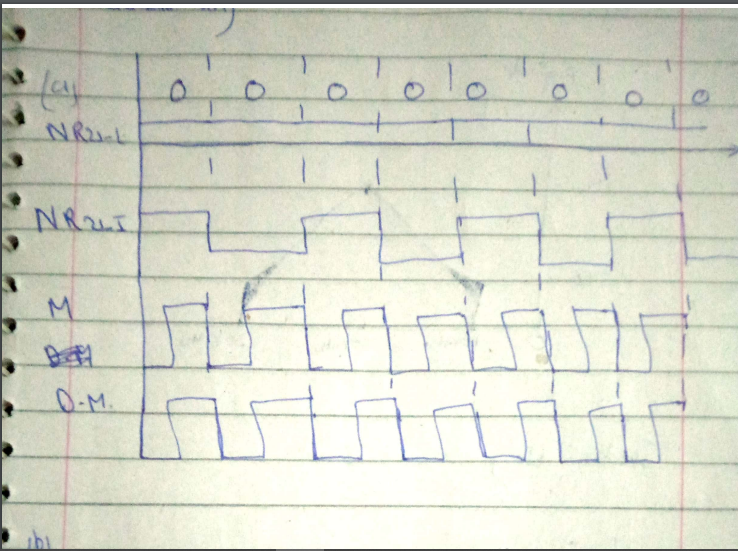 (a) 0 0 0 0 0 0 0 0
NRZ-L
NRZ-I
M
D.M.
(b)